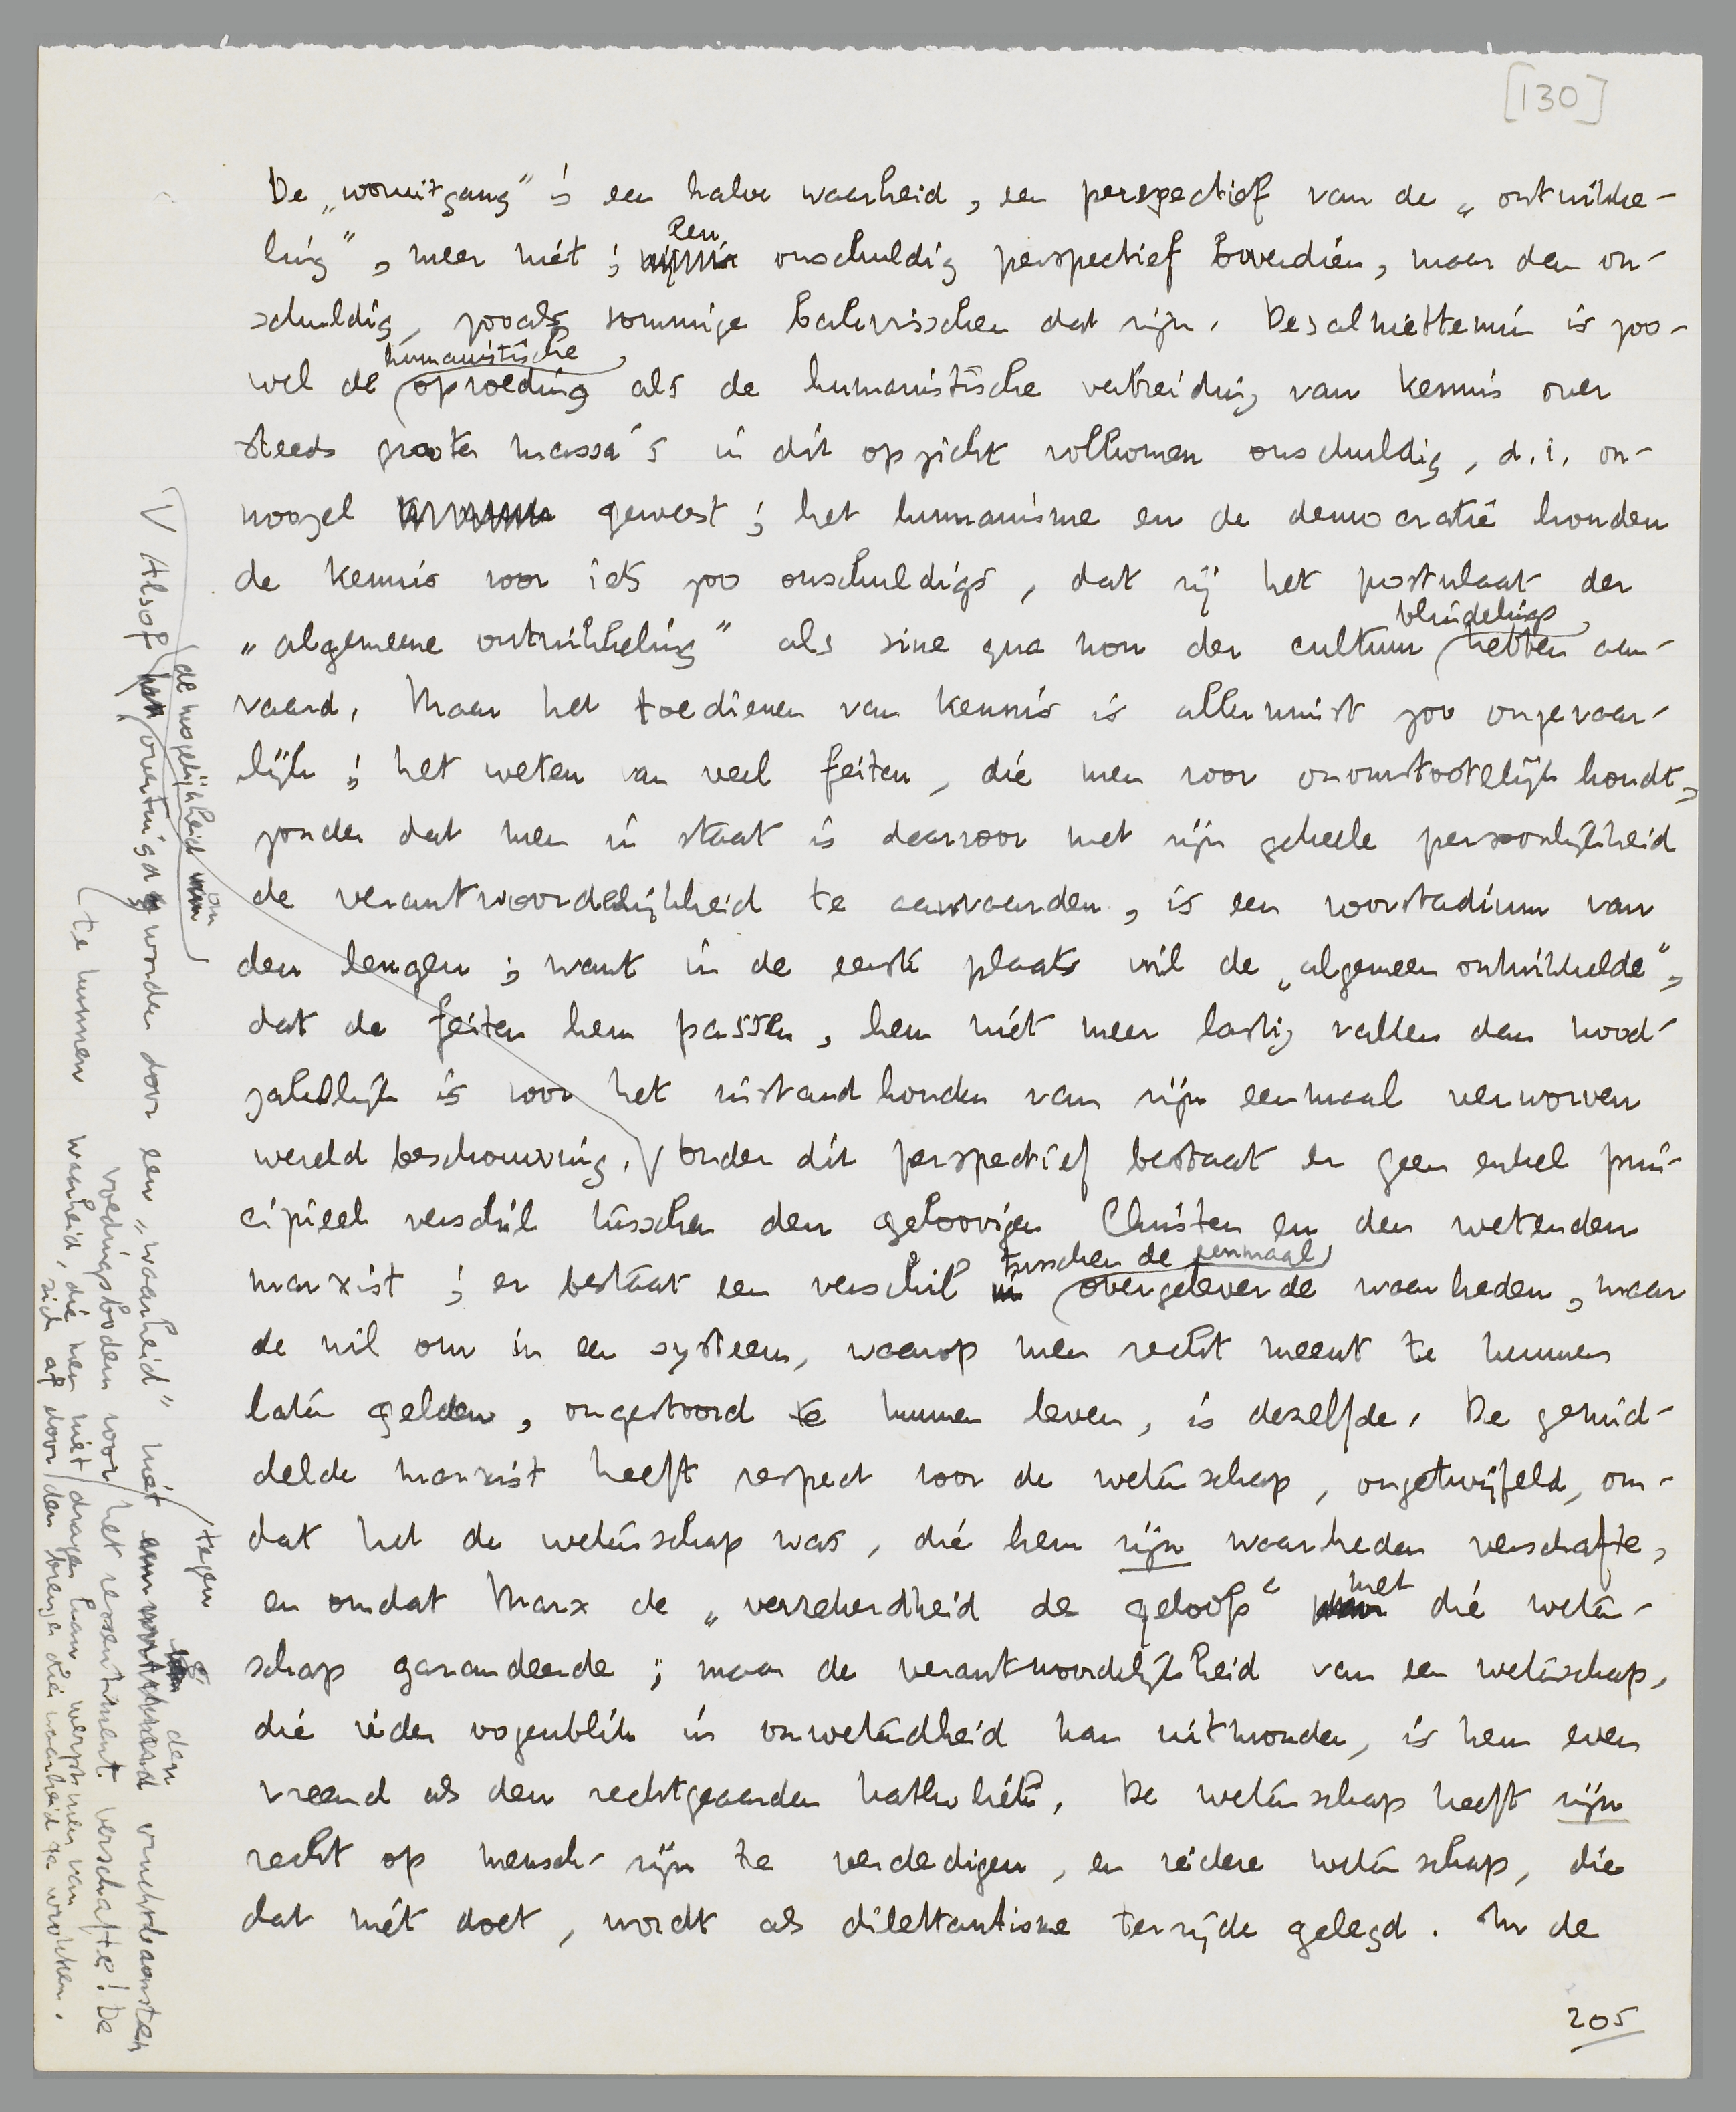 [130]
De „vooruitgang” is een halve waarheid, een perspectief van de „ontwikke-
ling”, meer niet; een onschuldig perspectief bovendien, maar dan on-
schuldig, zooals sommige bacteriën dat zijn. Desalniettemin is zoo-
wel de humanistische opvoeding als de humanistische verbreiding van kennis over
steeds grooter massa's in dit opzicht volkomen onschuldig, d.i. on-
noozel geweest; het humanisme en de democratie houden
de kennis voor iets zoo onschuldigs, dat zij het postulaat der
„algemeene ontwikkeling” als sine qua non der cultuur blindelings hebben aan-
vaard. Maar het toedienen van kennis is allerminst zoo ongevaar-
lijk; het weten van veel feiten, die men voor onomstootelijk houdt,
zonder dat men in staat is daarvoor met zijn geheele persoonlijkheid
de verantwoordelijkheid te aanvaarden, is een voorstadium van
den leugen; want in de eerste plaats wil de „algemeen ontwikkelde”,
dat de feiten hem passen, hem niet meer lastig vallen dan nood-
zakelijk is voor het instandhouden van zijn eenmaal verworven
wereldbeschouwing. V Onder dit perspectief bestaat er geen enkel prin-
cipieel verschil tusschen den geloovigen Christen en den wetenden
marxist; er bestaat een verschil tusschen de eenmaal overgeleverde waarheden, maar
de wil om in een systeem, waarop men recht meent te kunnen
laten gelden, ongestoord te kunnen leven, is dezelfde. De gemid-
delde marxist heeft respect voor de wetenschap, ongetwijfeld, om-
dat het de wetenschap was, die hem zijn waarheden verschafte,
en omdat Marx de „verzekerdheid des geloofs” met die weten-
schap garandeerde; maar de verantwoordelijkheid van een wetenschap,
die ieder oogenblik in onwetendheid kan uitmonden, is hem even
vreemd als den rechtgeaarden katholiek. De wetenschap heeft zijn
recht op mensch-zijn te verdedigen, en iedere wetenschap, die
dat niet doet, wordt als dilettantisme terzijde gelegd. In de
205
V Alsof de mogelijkheid om overtuigd te worden door een „waarheid” niet tegen den vruchtbaarsten
voedingsbodem voor het ressentiment verschafte! De
te kunnen waarheid, die men niet dragen kan, werpt men van
zich af door den brenger dier waarheid te wreken.